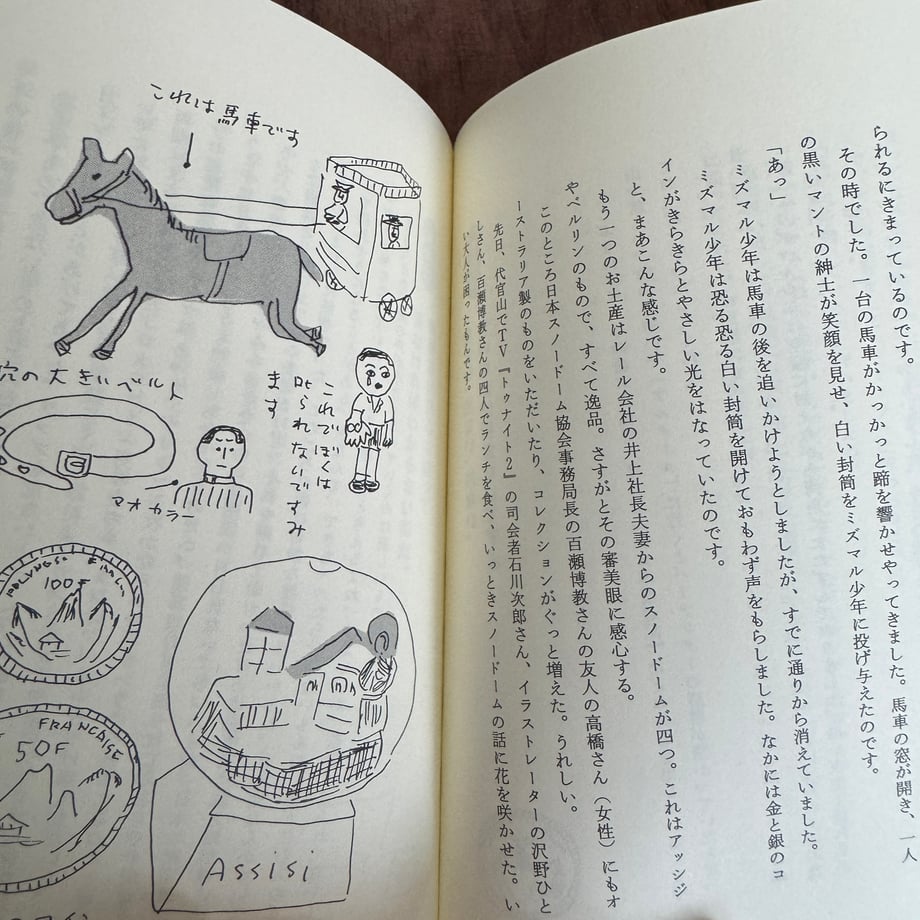 られるにきまっているのです。
その時でした。一台の馬車がかっかっと蹄を響かせやってきました。馬車の窓が開き、一人
の黒いマントの紳士が笑顔を見せ、白い封筒をミズマル少年に投げ与えたのです。
「あっ」
ミズマル少年は馬車の後を追いかけようとしましたが、すでに通りから消えていました。
ミズマル少年は恐る恐る白い封筒を開けておもわず声をもらしました。なかには金と銀のコ
インがきらきらとやさしい光をはなっていたのです。
と、まあこんな感じです。
もう一つのお土産はレール会社の井上社長夫妻からのスノードームが四つ。これはアッシジ
やベルリンのもので、すべて逸品。さすがとその審美眼に感心する。
このところ日本スノードーム協会事務局長の百瀬博教さんの友人の高橋さん（女性）にもオ
ーストラリア製のものをいただいたり、コレクションがぐっと増えた。うれしい。
先日、代官山でTV『トゥナイト2』の司会者石川次郎さん、イラストレーターの沢野ひと
しさん、百瀬博教さんの四人でランチを食べ、いっときスノードームの話に花を咲かせた。い
い大人が困ったもんです。
これは馬車です
これでぼくは
叱られないですみ
ます
穴の大きいベルト
マオカラー
100F
FRANCAISE
50F
Assisi